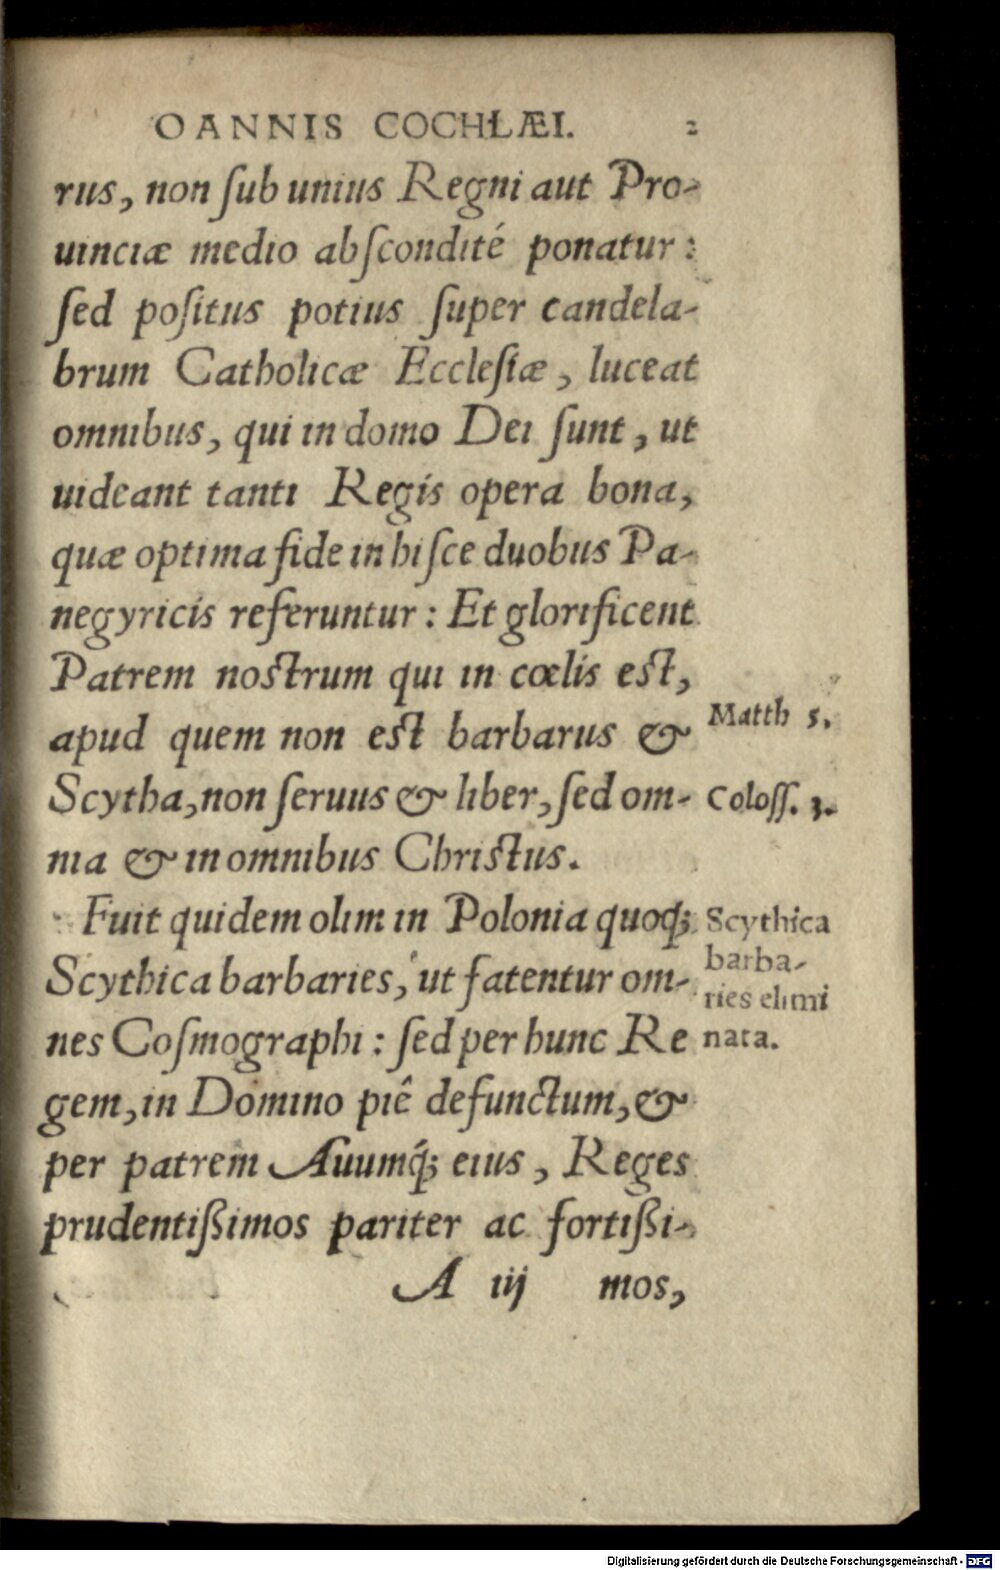 OANNIS COCHLÆI. 2
rus, non ſub unius Regni aut Pro-
uinciæ medio abſcondité ponatur:
ſed poſitus potius ſuper candela-
brum Catholicæ Eccleſiæ, luceat
omnibus, qui in domo Dei ſunt, ut
uideant tanti Regis opera bona,
quæ optima fide in hiſce duobus Pa-
negyricis referuntur: Et glorificent
Patrem noſtrum qui in cœlis eſt,
apud quem non eſt barbarus &
Matth 5.
Scytha, non ſeruus & liber, ſed om-
Coloſſ. 3.
nia & in omnibus Chriſtus.
Fuit quidem olim in Polonia quoq;
Scythica barbaries, ut fatentur om-
nes Coſmographi: ſed per hunc Re
gem, in Domino piê defunctum, &
per patrem Auumq́; eius, Reges
prudentißimos pariter ac fortißi-
Scythica
barba-
ries elimi
nata.
A iij mos,
Digitalisierung gefördert durch die Deutsche Forschungsgemeinschaft - DFG